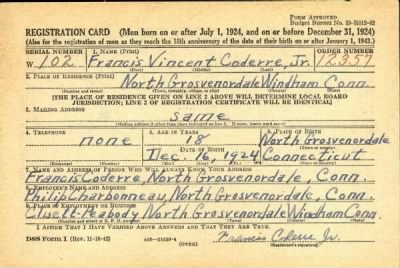 FORM APPROVED
Budget Bureau No. 33-R012-42
REGISTRATION CARD (Men born on or after July 1, 1924, and on or before December 31, 1924)
(Also for the registration of men as they reach the 18th anniversary of the date of their birth on or after January 1, 1943.)
SERIAL NUMBER 1. NAME (Print) ORDER NUMBER
W 102 Francis Vincent Coderre, Jr. 12357
(First) (Middle) (Last)
2. PLACE OF RESIDENCE (Print)
North Grosvenordale Windham Conn.
(Number and street) (Town, township, village, or city) (County) (State)
[THE PLACE OF RESIDENCE GIVEN ON LINE 2 ABOVE WILL DETERMINE LOCAL BOARD
JURISDICTION; LINE 2 OF REGISTRATION CERTIFICATE WILL BE IDENTICAL]
3. MAILING ADDRESS
same
[Mailing address if other than place indicated on line 2. If same, insert word same]
4. TELEPHONE 5. AGE IN YEARS 6. PLACE OF BIRTH
none 18 North Grosvenordale
DATE OF BIRTH
Dec. 16, 1924 Connecticut
(Exchange) (Number) (Mo.) (Day) (Yr.) (State or country)
7. NAME AND ADDRESS OF PERSON WHO WILL ALWAYS KNOW YOUR ADDRESS
Francis Coderre, North Grosvenordale, Conn.
8. EMPLOYER'S NAME AND ADDRESS
Philip Charbonneau, North Grosvenordale, Conn.
9. PLACE OF EMPLOYMENT OR BUSINESS
Cluett-Peabody, North Grosvenordale Windham Conn.
(Number and street or R. F. D. number) (Town) (County) (State)
I AFFIRM THAT I HAVE VERIFIED ABOVE ANSWERS AND THAT THEY ARE TRUE.
DSS Form 1 (Rev. 11-16-42) (OVER) Francis Coderre Jr.